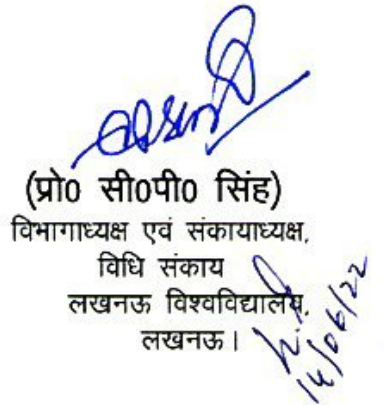 (प्रो0 सी0पी0 सिंह)
विभागाध्यक्ष एवं संकायाध्यक्ष,
विधि संकाय
लखनऊ विश्वविद्यालय,
लखनऊ।
14/06/22